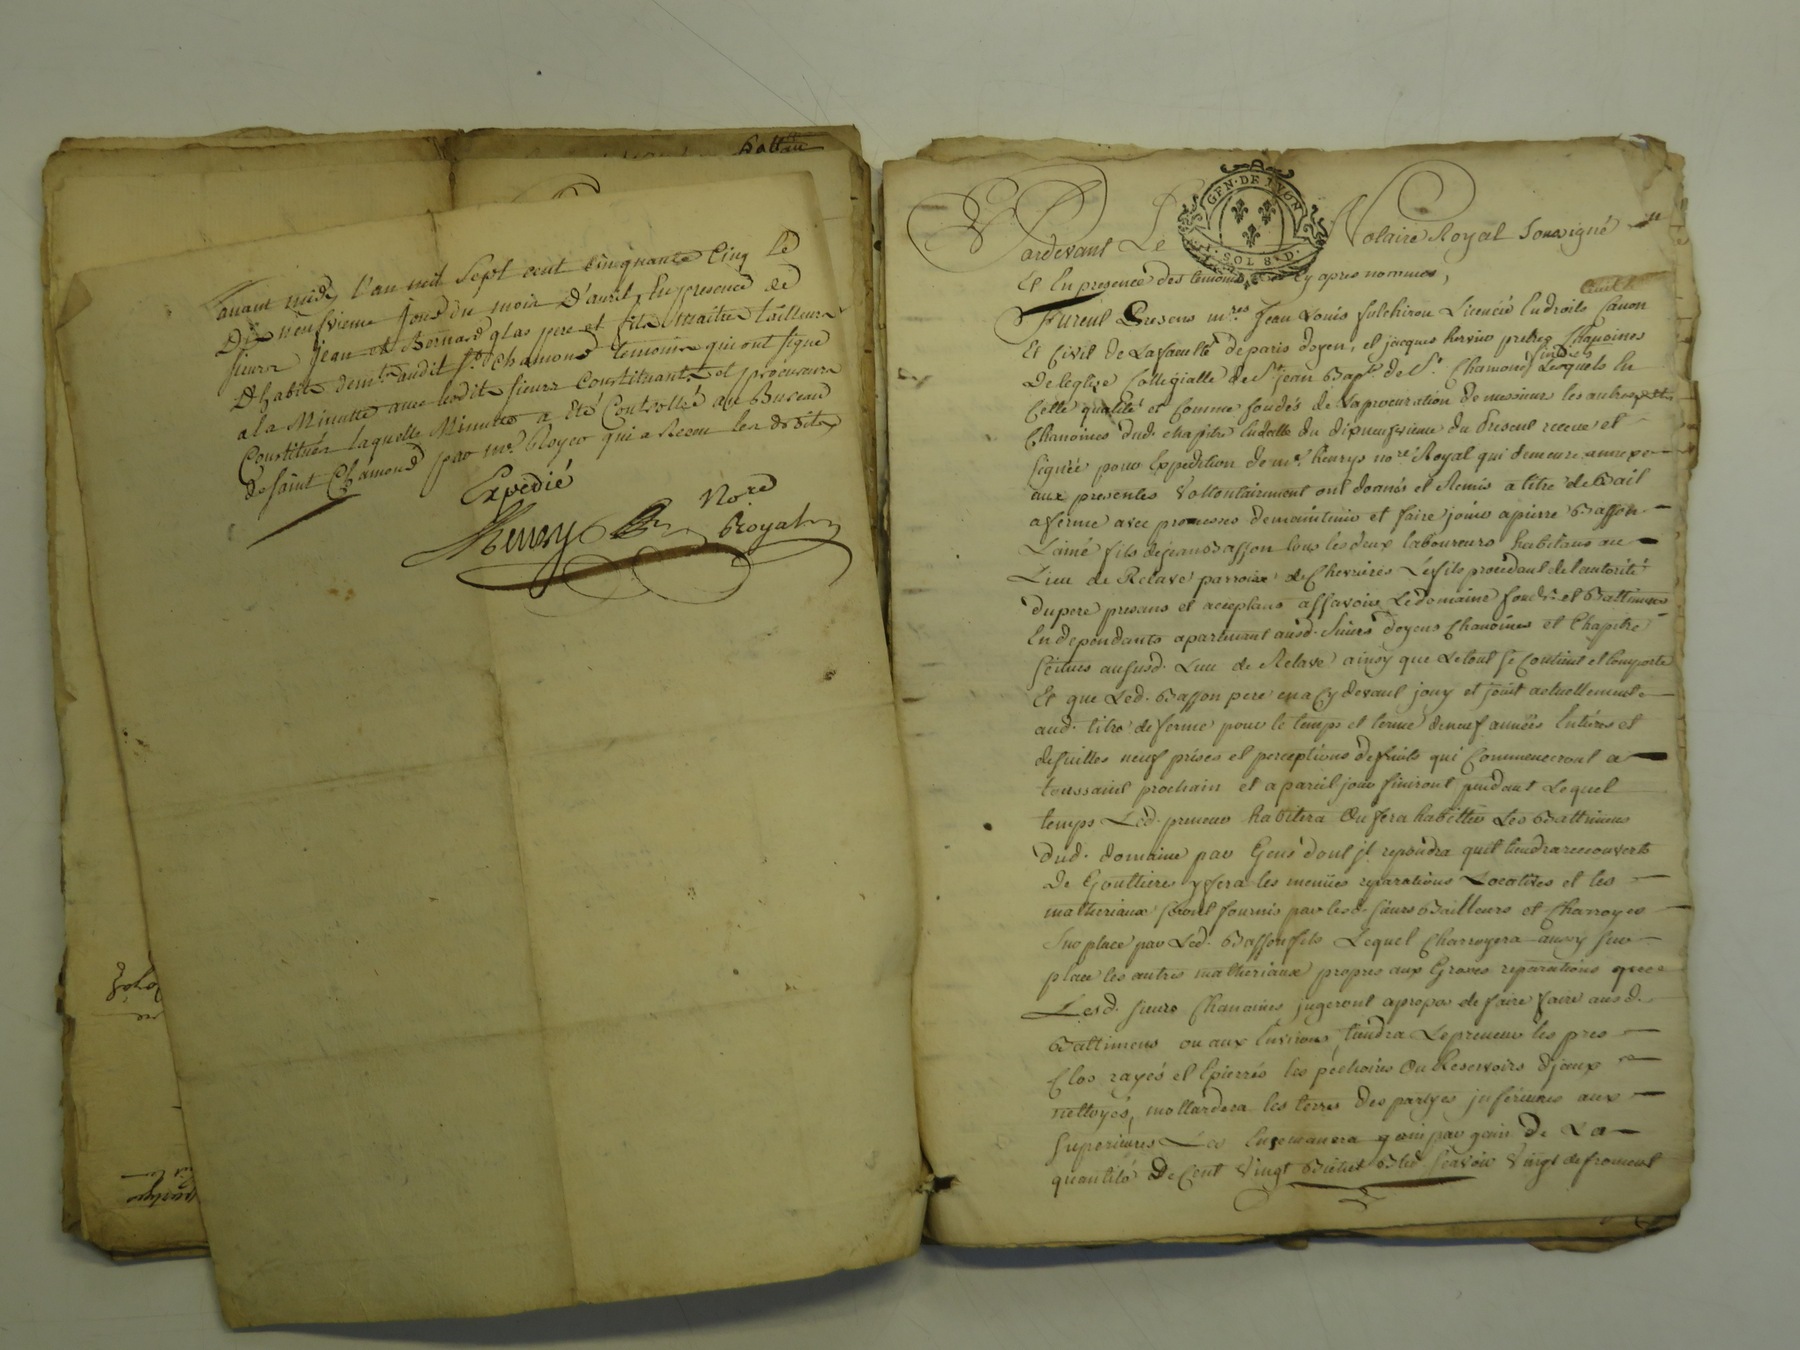 avant midy l'an mil sept cent cinquante cinq le
dix neufvieme jour du mois d'avril, En presence de
sieurs jean et Bernard glas pere et fils maitre tailleurs
d'habits demts audit St Chamond temoins qui ont signé
a la Minutte avec lesdits sieurs Constituants et procureurs
Constitués laquelle Minutte a été Controllée au Bureau
de saint Chamond par mr Royer qui a Receu les droits
Expedié
Henrys Nore
Royal
Pardevant Le Notaire Royal soussigné
GEN · DE LYON
1 · SOL 8 · D ·
Et En presence des temoins cy apres nommés,
Furent Presens mres Jean Louis fulchiron Licencié Endroits Canon
Et Civil de La faculté de paris doyen, et jacques hervier pretres Chanoines
sindics
De leglise Collegialle de St jean Bapte de St Chamond Lesquels En
Cette qualité et Comme fondés de La procuration de messieurs les autres
Chanoines dud. chapitre En datte du dix neufvieme du Present receue et
signée pour Expedition de me henrys nore Royal qui demeure annexée
aux presentes Vollontairement ont donnés et Remis a titre de Bail
a ferme avec promesses de maintenir et faire jouir a pierre Basson
L'ainé fils de jean Basson tous les deux laboureurs habitans au
Lieu de Relave parroisse de Chevrieres Le fils procédant de l'autorité
du pere presans et acceptans assavoir Le domaine fonds et Battimens
En dependants apartenant ausd. sieurs doyens Chanoines et Chapitre
scitués aususd. Lieu de Relave ainsy que Le tout se Contient et Comporte
Et que Led. Basson pere en a Cy devant jouy et jouit actuellement
aud. titre de ferme pour le temps et terme de neuf années Entieres et
desuittes neuf prises et perceptions de fruits qui Commenceront a
toussaint prochain et a pareil jour finiront pendant Lequel
temps Led. preneur habitera Ou fera habitter Les Battimens
dud. domaine par Gens dont jl repondra quil tiendra recouverts
de Gouttieres y fera les menües reparations Locatives et les
matheriaux seront fournis par lesd. sieurs Bailleurs et Charroyés
sur place par Led. Basson fils Lequel Charroyera aussy sur
place les autres matheriaux propres aux Groses reparations que
Lesd. sieurs Chanoines jugeront apropos de faire faire ausd.
Battimens ou aux Environs, tiendra Le preneur les pres
Clos rayés et Epierrés les pechoires Ou Reservoirs d'eaux
nettoyés, mottardera les terres des partyes jnferieures aux
superieures Les Ensemancera grain par grain de La
quantité De Cent Vingt Bichet Bled sçavoir Vingt de froment